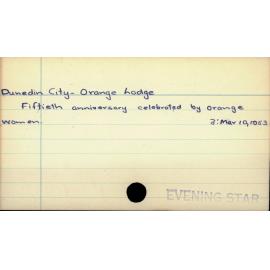 Dunedin City - Orange Lodge
Fiftieth anniversary celebrated by orange
women. 3: Mar 10, 1953
EVENING STAR